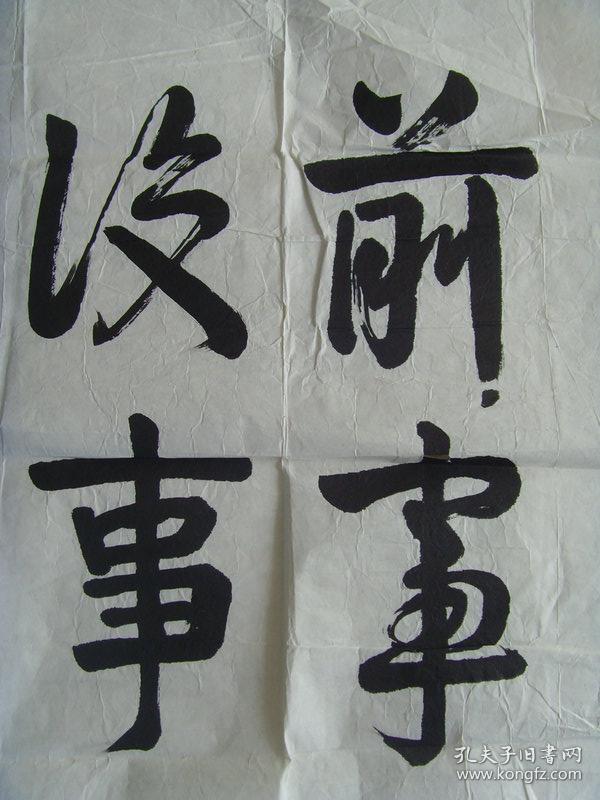 前事
後事
孔夫子旧书网
www.kongfz.com